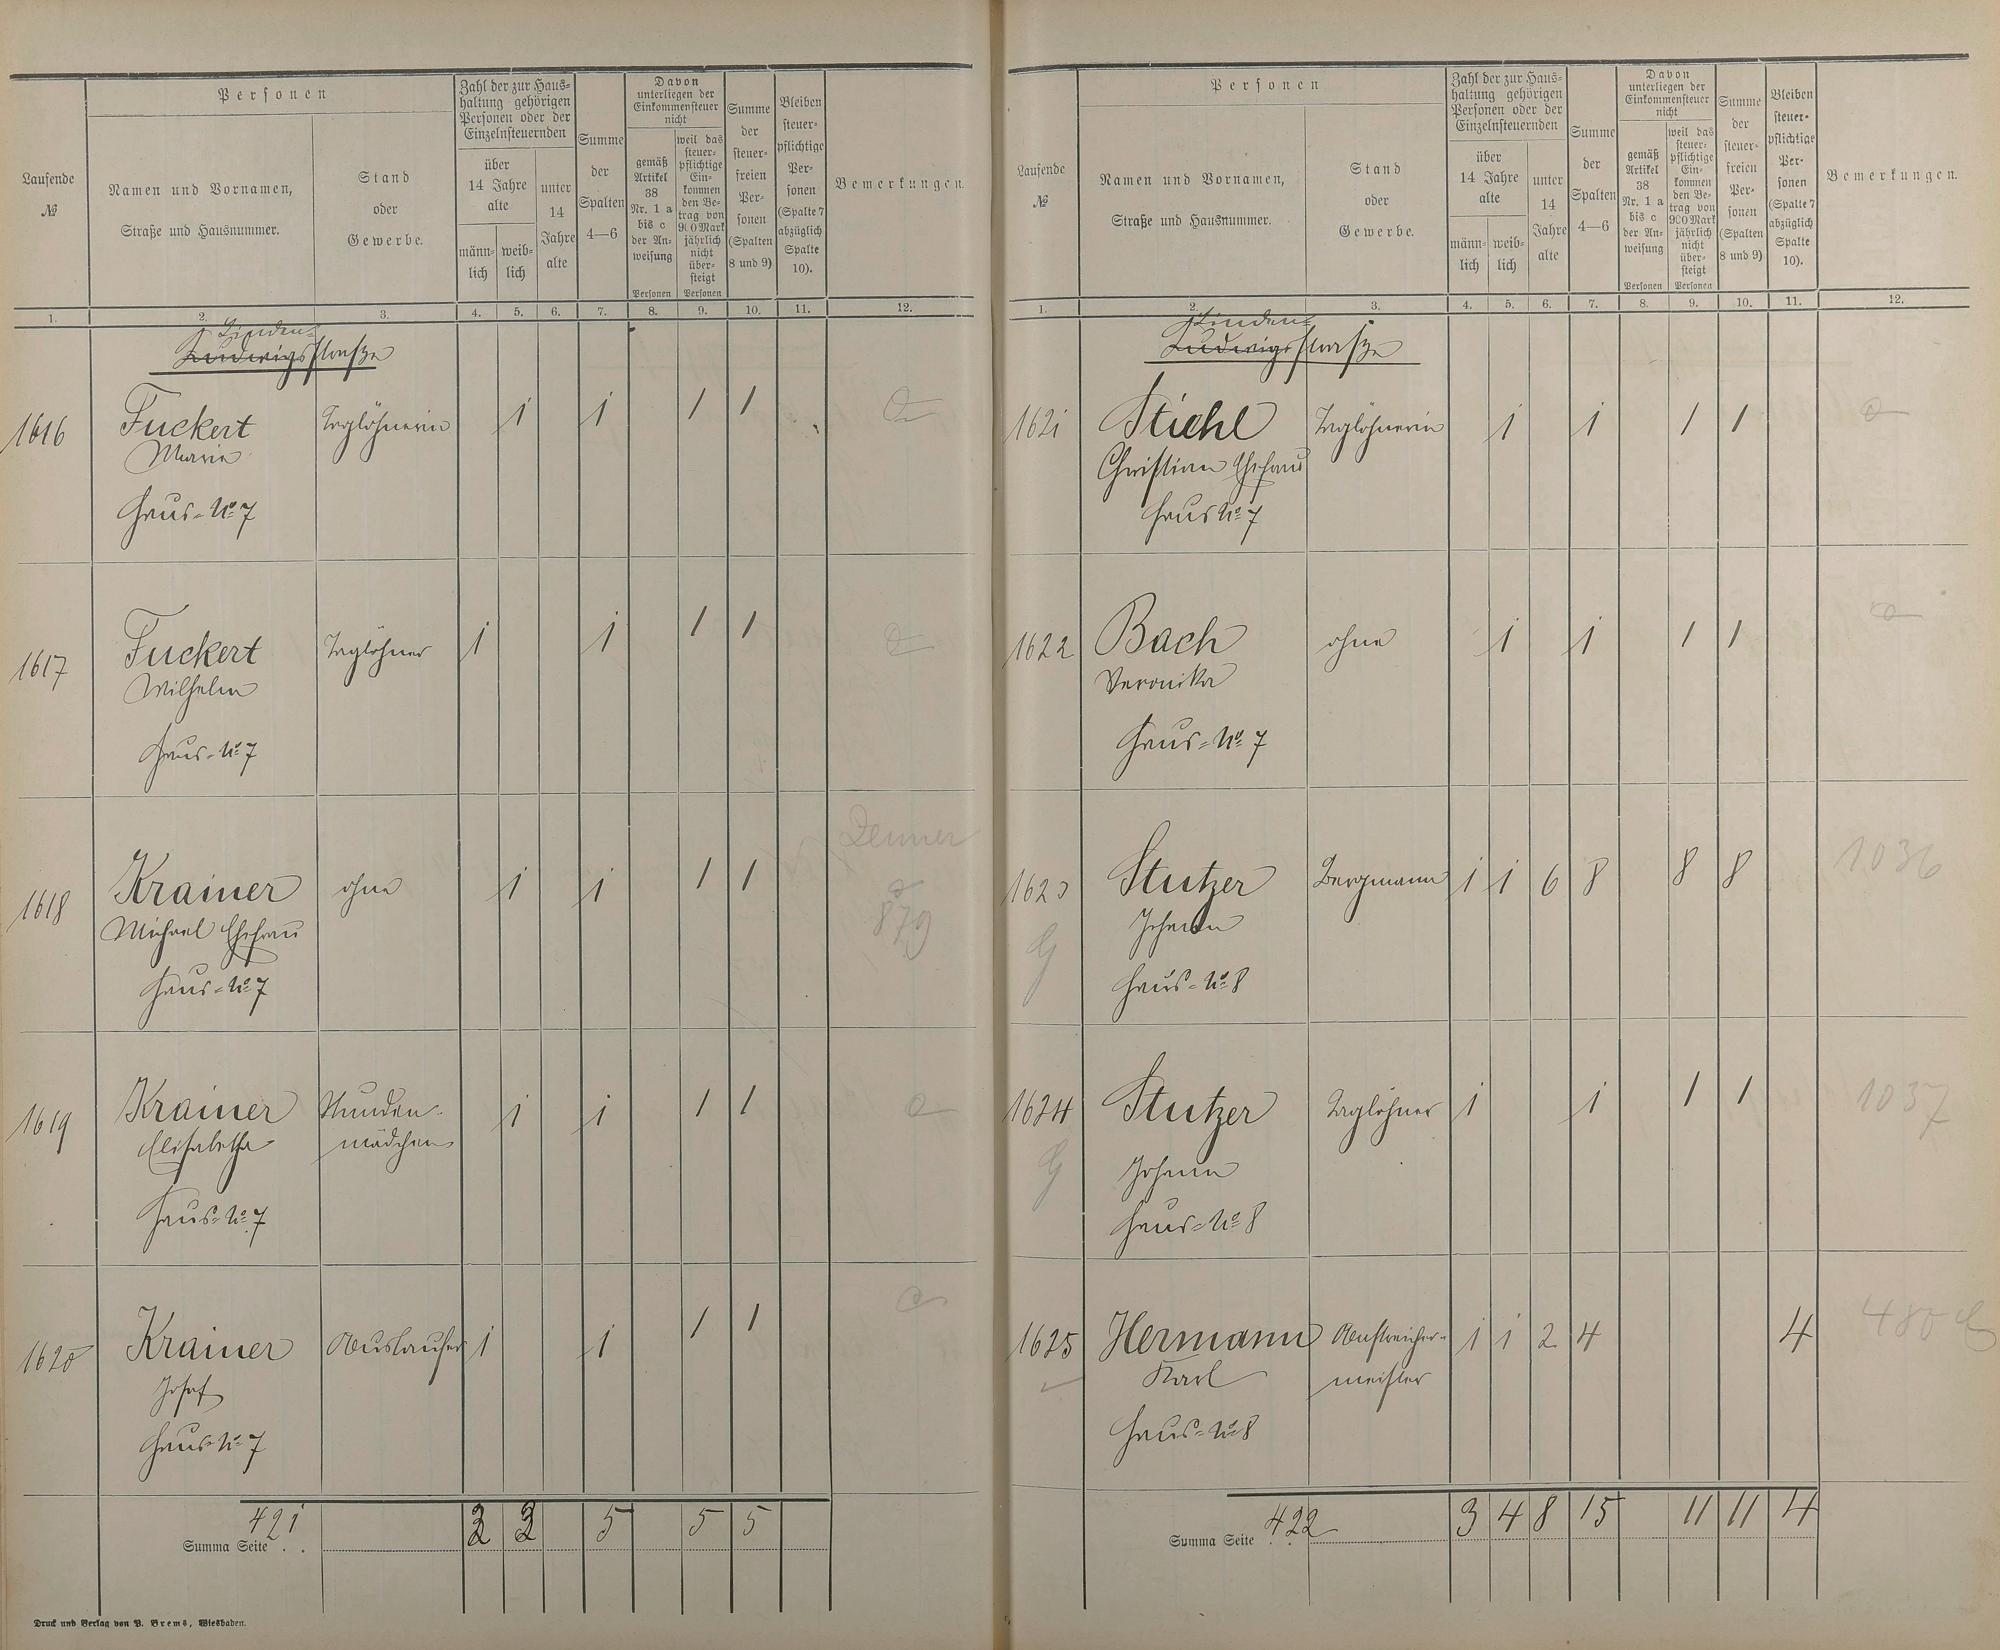 Laufende
№
Personen
Namen und Vornamen,
Straße und Hausnummer.
Stand
oder
Gewerbe.
Zahl der zur Haus-
haltung gehörigen
Personen oder der
Einzelnsteuernden
über
14 Jahre
alte
männ-
lich
weib-
lich
unter
14
Jahre
alte
Summe
der
Spalten
4—6
Davon
unterliegen der
Einkommensteuer
nicht
gemäß
Artikel
38
Nr. 1 a
bis c
der An-
weisung
Personen
weil das
steuer-
pflichtige
Ein-
kommen
den Be-
trag von
900 Mark
jährlich
nicht
über-
steigt
Personen
Summe
der
steuer-
freien
Per-
sonen
(Spalten
8 und 9)
Bleiben
steuer-
pflichtige
Per-
sonen
(Spalte 7
abzüglich
Spalte
10).
Bemerkungen.
1. 2. 3. 4. 5. 6. 7. 8. 9. 10. 11. 12.
Linden-
Ludwigsstraße
1616 Fuckert Taglöhnerin 1 1 1 1
Marie
Haus-No 7
1617 Fuckert Taglöhner 1 1 1 1
Wilhelm
Haus-No 7
Denner
1618 Krainer ohne 1 1 1 1
Michael Ehefrau 879
Haus-No 7
1619 Krainer Stunden- 1 1 1 1
Elisabetha mädchen
Haus-No 7
1620 Krainer Auslaufer 1 1 1 1
Josef
Haus-No 7
Summa Seite 421 2 3 5 5 5
Druck und Verlag von P. Brems, Wiesbaden.
Laufende
№
Personen
Namen und Vornamen,
Straße und Hausnummer.
Stand
oder
Gewerbe.
Zahl der zur Haus-
haltung gehörigen
Personen oder der
Einzelnsteuernden
über
14 Jahre
alte
männ-
lich
weib-
lich
unter
14
Jahre
alte
Summe
der
Spalten
4—6
Davon
unterliegen der
Einkommensteuer
nicht
gemäß
Artikel
38
Nr. 1 a
bis c
der An-
weisung
Personen
weil das
steuer-
pflichtige
Ein-
kommen
den Be-
trag von
900 Mark
jährlich
nicht
über-
steigt
Personen
Summe
der
steuer-
freien
Per-
sonen
(Spalten
8 und 9)
Bleiben
steuer-
pflichtige
Per-
sonen
(Spalte 7
abzüglich
Spalte
10).
Bemerkungen.
1. 2. 3. 4. 5. 6. 7. 8. 9. 10. 11. 12.
Linden-
Ludwigsstraße
1621 Stiehl Taglöhnerin 1 1 1 1
Christian Ehefrau
Haus No 7
1622 Bach ohne 1 1 1 1
Veronika
Haus-No 7
1623 Stutzer Bergmann 1 1 6 8 8 8 1036
Johann
Haus-No 8
1624 Stutzer Taglöhner 1 1 1 1 1037
Johann
Haus-No 8
1625 Hermann Anstreicher- 1 1 2 4 4 480
Karl meister
Haus-No 8
Summa Seite 422 3 4 8 15 11 11 4